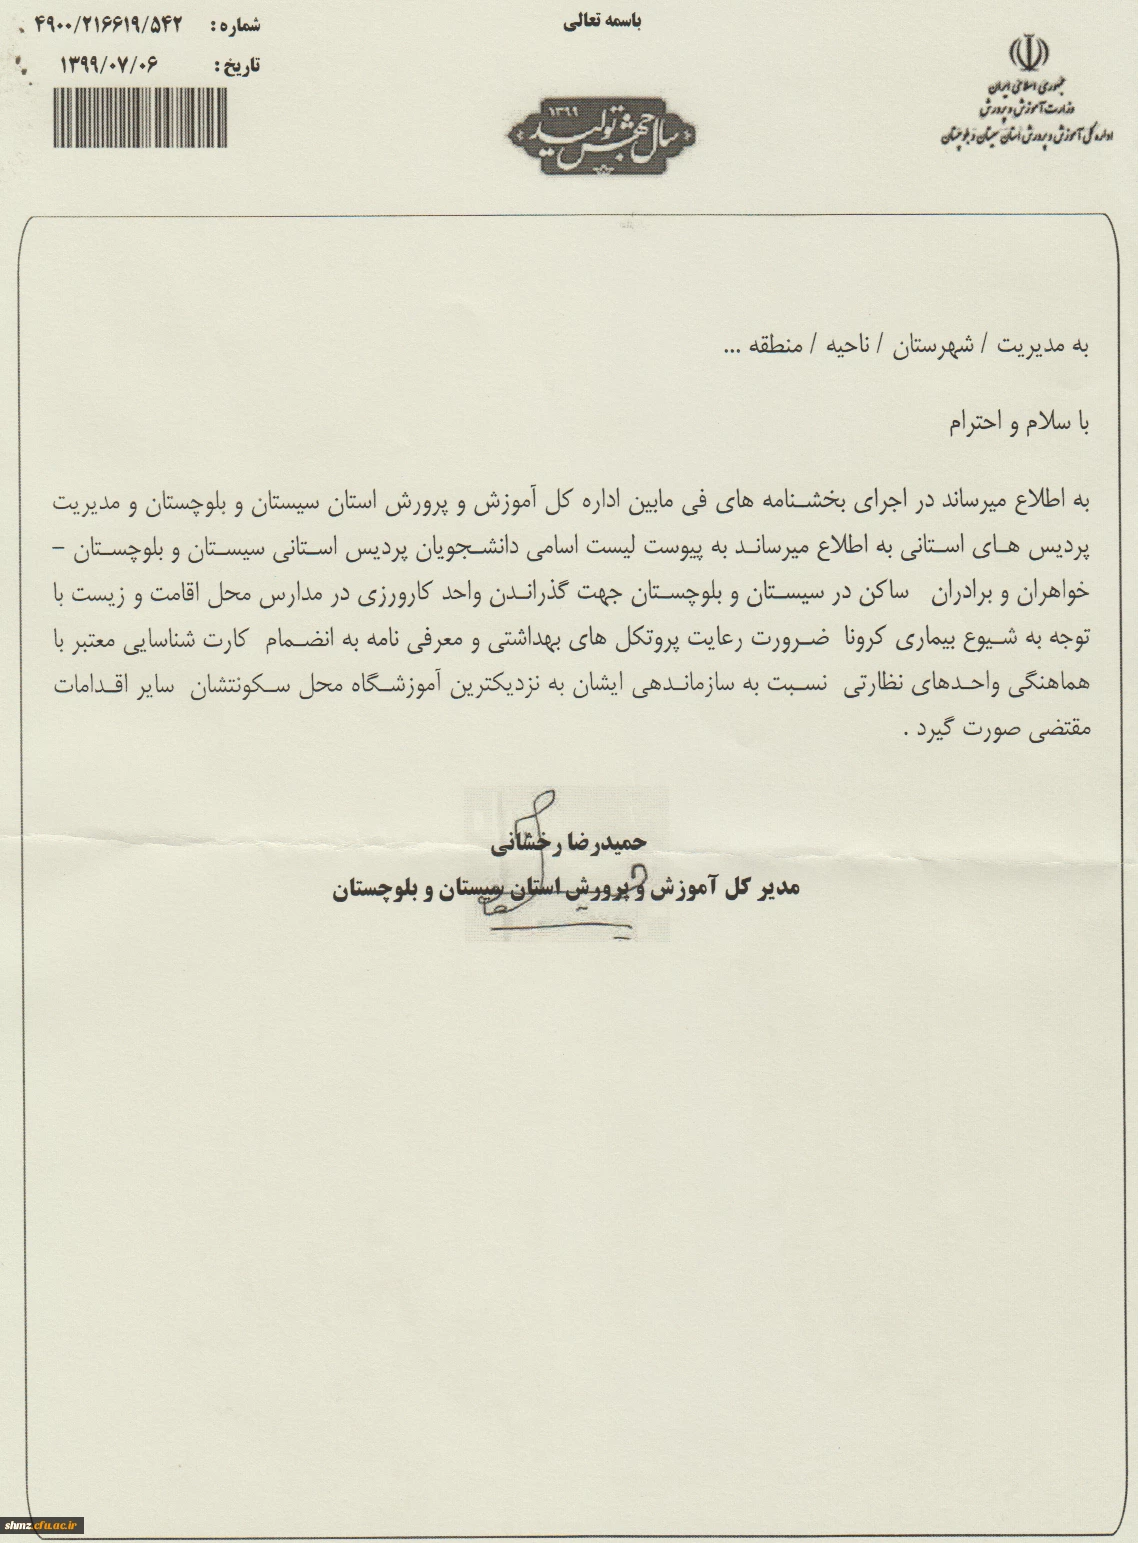 باسمه تعالی
جمهوری اسلامی ایران
وزارت آموزش و پرورش
اداره کل آموزش و پرورش استان سیستان و بلوچستان
شماره : ۴۹۰۰/۲۱۶۶۱۹/۵۴۲
تاریخ : ۱۳۹۹/۰۷/۰۶
سال جهش تولید ۱۳۹۹
به مدیریت / شهرستان / ناحیه / منطقه ...
با سلام و احترام
به اطلاع میرساند در اجرای بخشنامه های فی مابین اداره کل آموزش و پرورش استان سیستان و بلوچستان و مدیریت
پردیس های استانی به اطلاع میرساند به پیوست لیست اسامی دانشجویان پردیس استانی سیستان و بلوچستان –
خواهران و برادران ساکن در سیستان و بلوچستان جهت گذراندن واحد کارورزی در مدارس محل اقامت و زیست با
توجه به شیوع بیماری کرونا ضرورت رعایت پروتکل های بهداشتی و معرفی نامه به انضمام کارت شناسایی معتبر با
هماهنگی واحدهای نظارتی نسبت به سازماندهی ایشان به نزدیکترین آموزشگاه محل سکونتشان سایر اقدامات
مقتضی صورت گیرد .
حمیدرضا رخشانی
مدیر کل آموزش و پرورش استان سیستان و بلوچستان
shmz.cfu.ac.ir